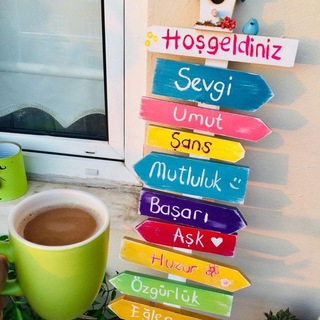 Hoşgeldiniz
Sevgi
Umut
Şans
Mutluluk
Başarı
Aşk
Huzur
Özgürlük